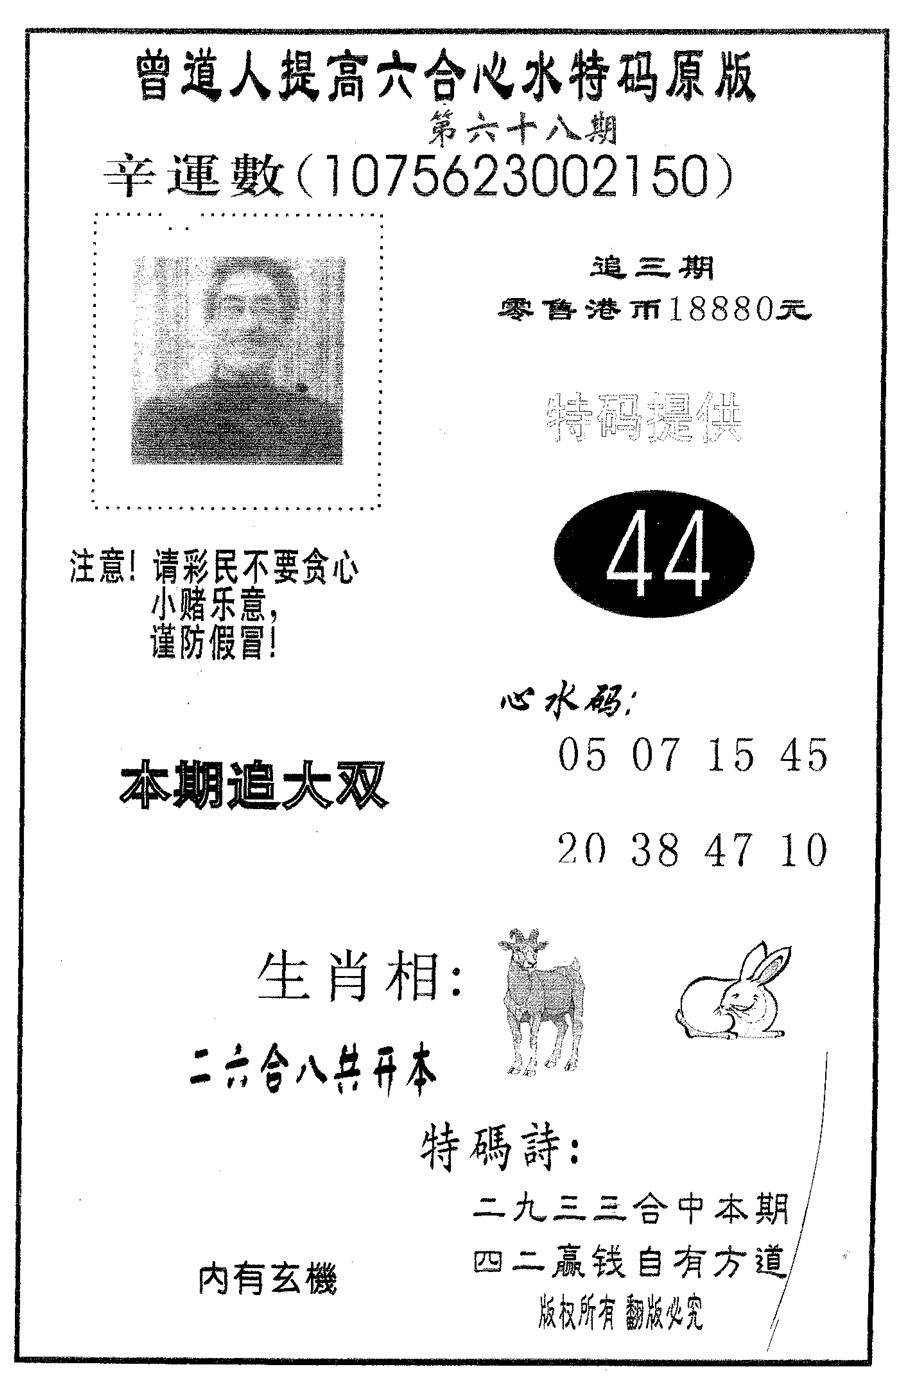 曾道人提高六合心水特码原版
第六十八期
辛運數(1075623002150)
追三期
零售港币18880元
特码提供
44
注意!请彩民不要贪心
小赌乐意,
谨防假冒!
心水码:
05 07 15 45
本期追大双
20 38 47 10
生肖相:
二六合八共开本
特碼詩:
二九三三合中本期
四二赢钱自有方道
内有玄機
版权所有 翻版必究